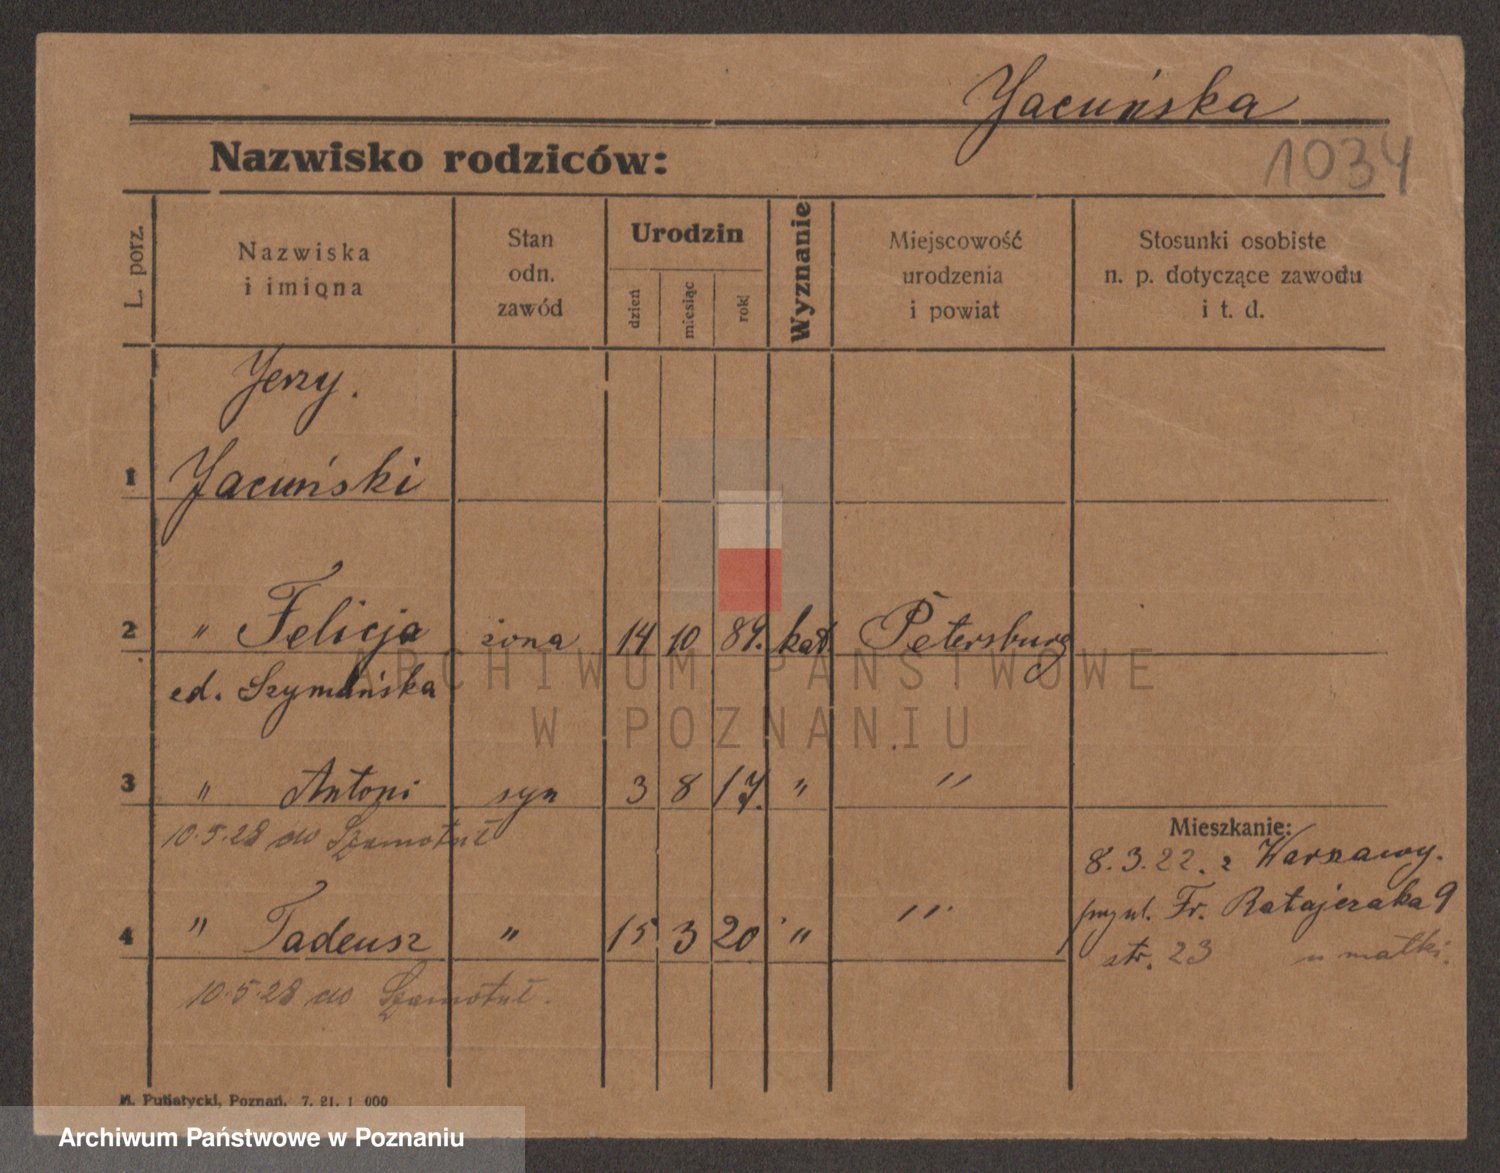 Jacuńska
1034
Nazwisko rodziców:
L. porz.
Nazwiska
i imiona
Stan
odn.
zawód
Urodzin
dzień
miesiąc
rok
Wyznanie
Miejscowość
urodzenia
i powiat
Stosunki osobiste
n. p. dotyczące zawodu
i t. d.
Jerzy.
1 Jacuński
2 " Felicja żona 14 10 89. kat. Petersburg
ed. Szymańska
3 " Antoni syn 3 8 17. " "
10.5.28 do Szamotuł
Mieszkanie:
8.3.22. z Warszawy.
przy ul. Fr. Ratajczaka 9
str. 23 u matki.
4 " Tadeusz " 15 3 20 " "
10.5.28 do Szamotuł.
M. Putiatycki, Poznań. 7. 21. 1 000
ARCHIWUM PAŃSTWOWE
W POZNANIU
Archiwum Państwowe w Poznaniu